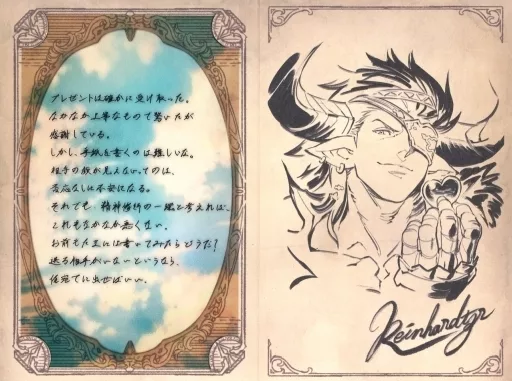 プレゼントは確かに受け取った。
なかなか上等なもので驚いたが
感謝している。
しかし、手紙を書くのは難しいな。
相手の顔が見えないってのは、
否応なしに不安になる。
それでも、精神修行の一環と考えれば、
これもなかなか悪くない。
お前もたまには書いてみたらどうだ?
送る相手がいないというなら、
俺宛てに出せばいい。
Reinhardtzar